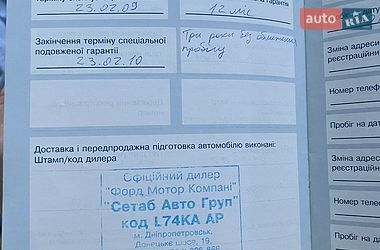 auto RIA
23.02.09
12 міс
Закінчення терміну спеціальної
подовженої гарантії
23.02.10
Три роки без обмеження
пробігу
Доставка і передпродажна підготовка автомобілю виконані:
Штамп/код дилера
Офіційний дилер
"Форд Мотор Компані"
"Сетаб Авто Груп"
код L74KA AP
м. Дніпропетровськ,
Донецьке шосе, 19,
Зміна адреси
реєстраційни
Номер телеф
Пробіг на дат
Зміна адреси
реєстраційни
Номер телефо
Пробіг на дату